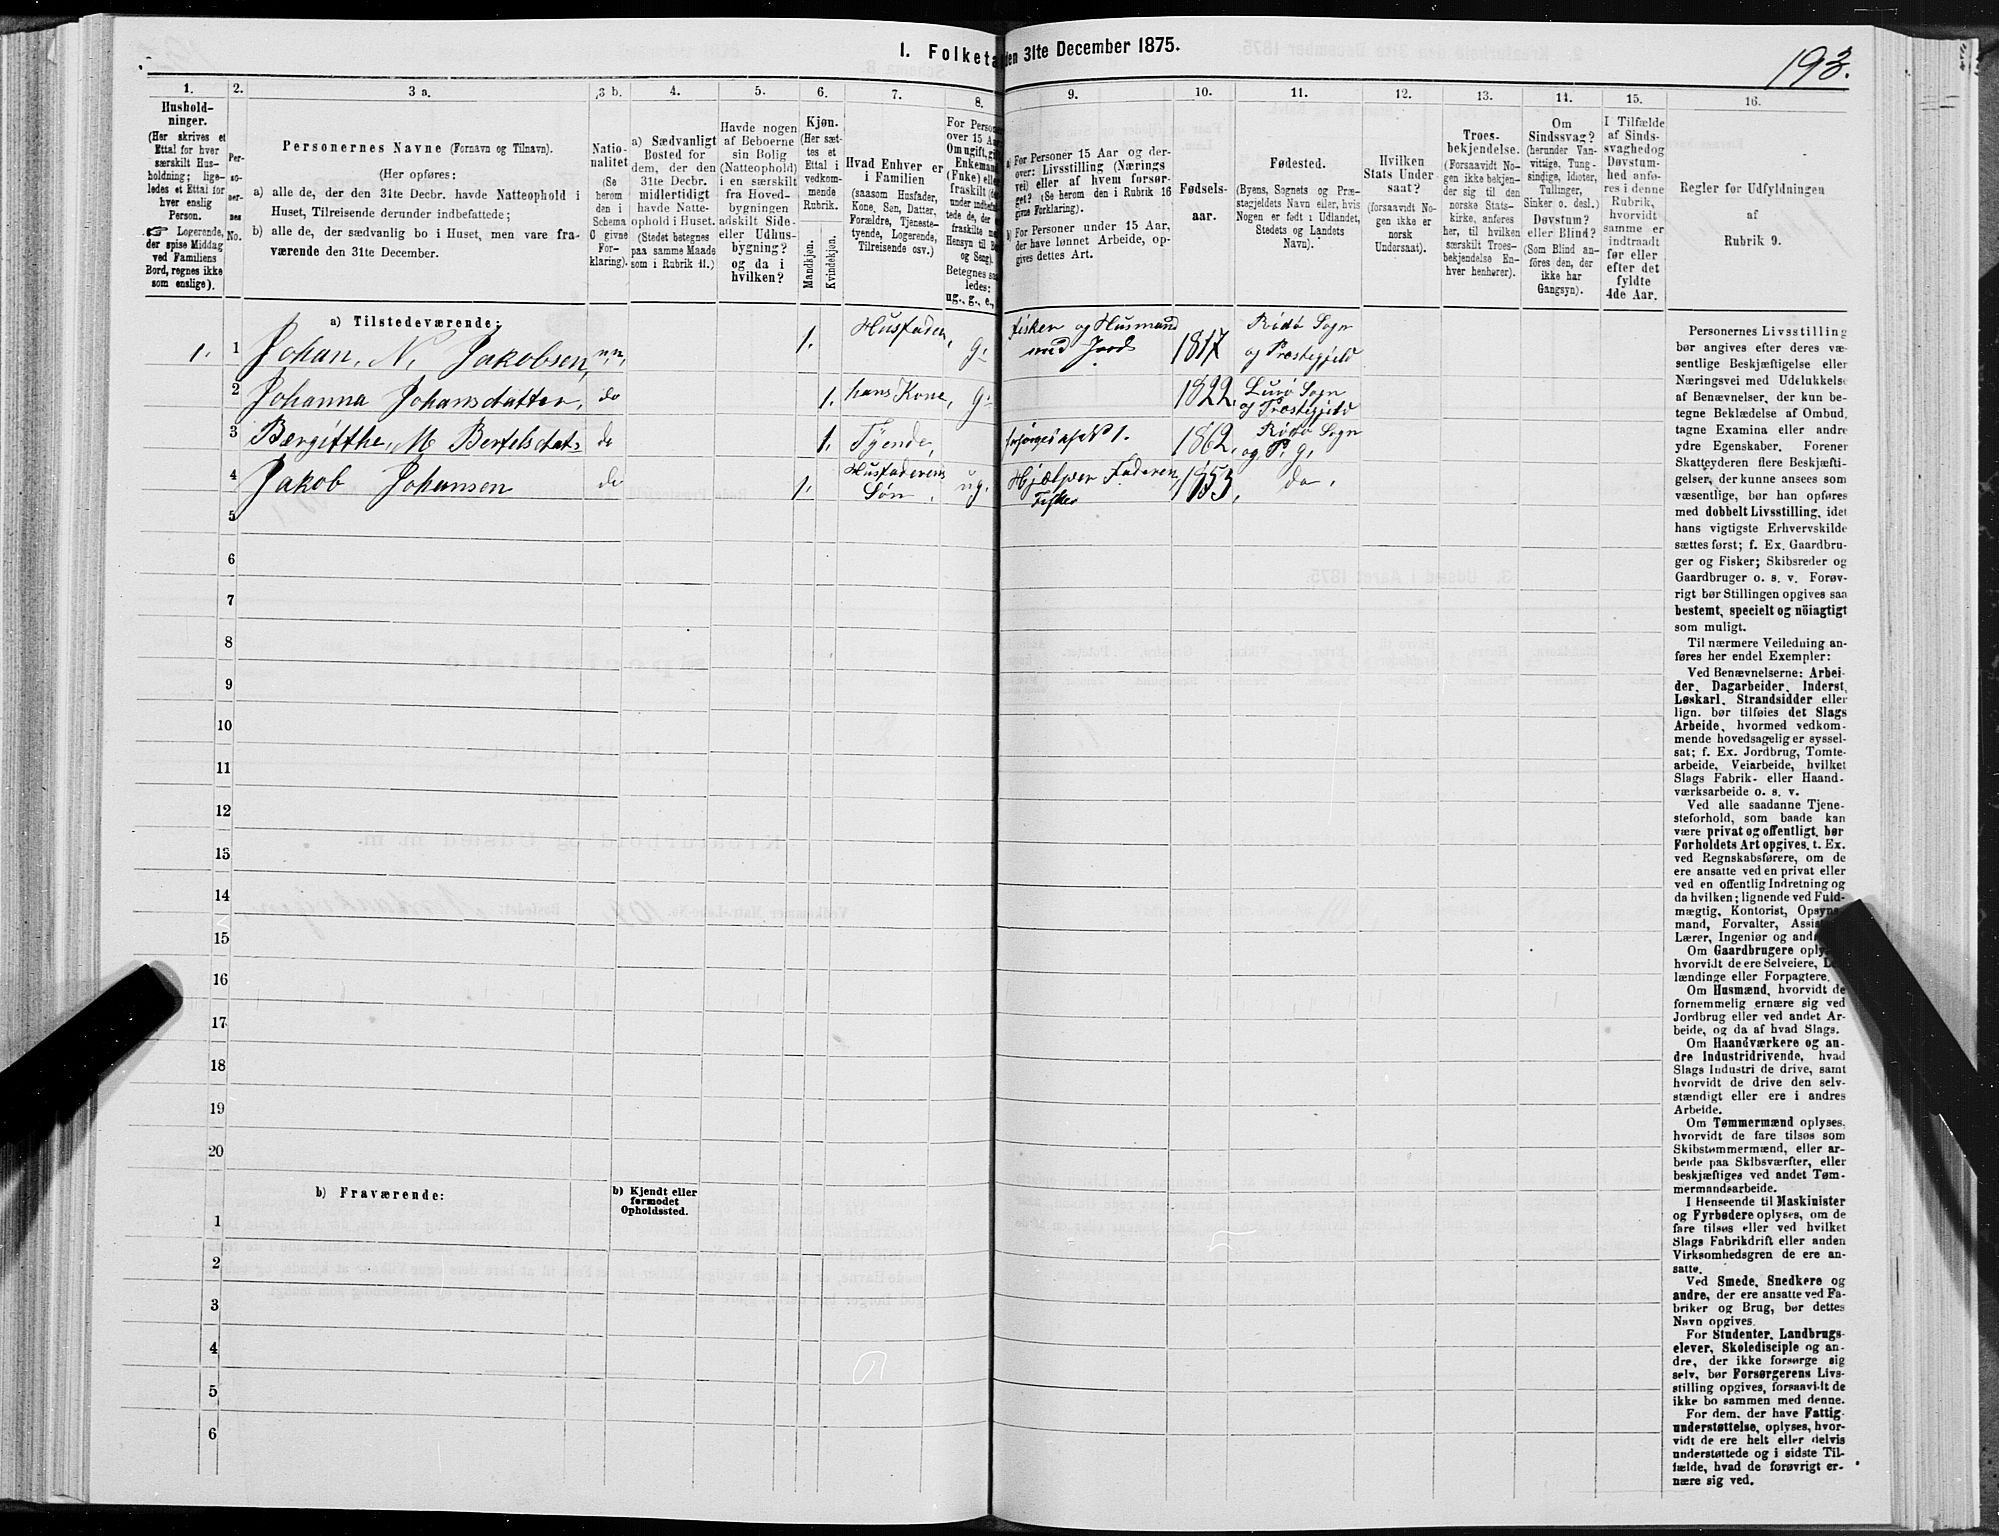 193.
I. Folketæ den 31te December 1875.
1. 2. 3 a. 3 b. 4. 5. 6. 7. 8. 9. 10. 11. 12. 13. 14. 15. 16.
Hushold-
ninger.
(Her skrives et
Ettal for hver
særskilt Hus-
holdning; lige-
ledes et Ettal for
hver enslig
Person.
☞ Logerende,
der spise Middag
ved Familiens
Bord, regnes ikke
som enslige).
Per-
so-
ner-
nes
No.
Personernes Navne (Fornavn og Tilnavn).
(Her opføres:
a) alle de, der den 31te Decbr. havde Natteophold i
Huset, Tilreisende derunder indbefattede;
b) alle de, der sædvanlig bo i Huset, men vare fra-
værende den 31te December.
Natio-
nalitet
(Se
herom
den i
Schema
C givne
For-
klaring).
a) Sædvanligt
Bosted for
dem, der den
31te Decbr.
midlertidigt
havde Natte-
ophold i Huset.
(Stedet betegnes
paa samme Maade
som i Rubrik 11.)
Havde nogen
af Beboerne
sin Bolig
(Natteophold)
i en særskilt
fra Hoved-
bygningen
adskilt Side-
eller Udhus-
bygning?
og da i
hvilken?
Kjøn.
(Her sæt-
tes et
Ettal i
vedkom-
mende
Rubrik.
Mandkjøn.
Kvindekjøn.
Hvad Enhver er
i Familien
(saasom Husfader,
Kone, Søn, Datter,
Forældre, Tjeneste-
tyende, Logerende,
Tilreisende osv.)
For Persone
over 15 Aar
Om ugift, gift
Enkemand
(Enke) eller
fraskilt
Betegnes saa
ledes:
ug., g., e.,
a) For Personer 15 Aar og der-
over: Livsstilling (Nærings
vei) eller af hvem forsør-
get? (Se herom den i Rubrik 16
givne Forklaring).
b) For Personer under 15 Aar,
der have lønnet Arbeide, op-
gives dettes Art.
Fødsels-
aar.
Fødested.
(Byens, Sognets og Præ-
stegjeldets Navn eller, hvis
Nogen er født i Udlandet,
Stedets og Landets
Navn).
Hvilken
Stats Under-
saat?
(forsaavidt No-
gen ikke er
norsk
Undersaat).
Troes-
bekjendelse.
(Forsaavidt No-
gen ikke bekjen-
der sig til den
norske Stats-
kirke, anføres
her, til hvilken
særskilt Troes-
bekjendelse En-
hver henhører).
Om
Sindssvag?
(herunder Van-
vittige, Tung-
sindige, Idioter,
Tullinger,
Sinker o. desl.)
Døvstum?
eller Blind?
(Som Blind an-
føres den, der
ikke har
Gangsyn).
I Tilfælde
af Sinds-
svaghed og
Døvstum-
hed anfø-
res i denne
Rubrik,
hvorvidt
samme er
indtraadt
før eller
efter det
fyldte
4de Aar.
Regler for Udfyldningen
af
Rubrik 9.
a) Tilstedeværende:
1. 1 Johan. N. Jakobsen, n,n, 1. Husfader, g. Fisker og Husmand med Jord 1817 Rødø Sogn og Præstegjeld
2 Johanna Johansdatter, do 1. hans Kone, g. 1822. Lurø Sogn og Præstegjeld
3 Bergitthe. M Bertelsdat: do 1. Tyende, forsørges af N° 1. 1862. Rødø Sogn og P. g,
4 Jakob Johansen do 1. Husfaderens Søn. ug. Hjælper Faderen, Fisker 1853, do.
5
6
7
8
9
10
11
12
13
14
15
16
17
18
19
20
b) Fraværende:
b) Kjendt eller
formodet
Opholdssted.
1
2
3
4
5
6
Personernes Livsstilling
bør angives efter deres væ-
sentlige Beskjæftigelse eller
Næringsvei med Udelukkelse
af Benævnelser, der kun be-
tegne Beklædelse af Ombud,
tagne Examina eller andre
ydre Egenskaber. Forener
Skatteyderen flere Beskjæfti-
gelser, der kunne ansees som
væsentlige, bør han opføres
med dobbelt Livsstilling, idet
hans vigtigste Erhvervskilde
sættes først; f. Ex. Gaardbru-
ger og Fisker; Skibsreder og
Gaardbruger o. s. v. Forøv-
rigt bør Stillingen opgives saa
bestemt, specielt og nøiagtigt
som muligt.
Til nærmere Veiledning an-
føres her endel Exempler:
Ved Benævnelserne: Arbei-
der, Dagarbeider, Inderst,
Løskarl, Strandsidder eller
lign. bør tilføies det Slags
Arbeide, hvormed vedkom-
mende hovedsagelig er syssel-
sat; f. Ex. Jordbrug, Tomte-
arbeide, Veiarbeide, hvilket
Slags Fabrik- eller Haand-
værksarbeide o. s. v.
Ved alle saadanne Tjene-
steforhold, som baade kan
være privat og offentligt, bør
Forholdets Art opgives, t. Ex.
ved Regnskabsførere, om de
ere ansatte ved en privat eller
ved en offentlig Indretning og
da hvilken; lignende ved Fuld-
mægtig, Kontorist, Opsyns-
mand, Forvalter, Assis
Lærer, Ingeniør og and
Om Gaardbrugere oply
hvorvidt de ere Selveiere, L
lændinge eller Forpagtere.
Om Husmænd, hvorvidt de
fornemmelig ernære sig ved
Jordbrug eller ved andet Ar-
beide, og da af hvad Slags.
Om Haandværkere og an-
dre Industridrivende, hvad
Slags Industri de drive, samt
hvorvidt de drive den selv-
stændigt eller ere i andres
Arbeide.
Om Tømmermænd oplyses,
hvorvidt de fare tilsøs som
Skibstømmermænd, eller ar-
beide paa Skibsværfter, eller
beskjæftiges ved andet Tøm-
mermandsarbeide.
I Henseende til Maskinister
og Fyrbødere oplyses, om de
fare tilsøs eller ved hvilket
Slags Fabrikdrift eller anden
Virksomhedsgren de ere an-
satte.
Ved Smede, Snedkere og
andre, der ere ansatte ved Fa-
briker og Brug, bør dettes
Navn opgives.
For Studenter, Landbrugs-
elever, Skoledisciple og an-
dre, der ikke forsørge sig
selv, bør Forsørgerens Livs-
stilling opgives, forsaavidt de
ikke bo sammen med denne.
For dem, der have Fattig-
understøttelse, oplyses, hvor-
vidt de ere helt eller delvis
understøttede og i sidste Til-
fælde, hvad de forøvrigt er-
nære sig ved.